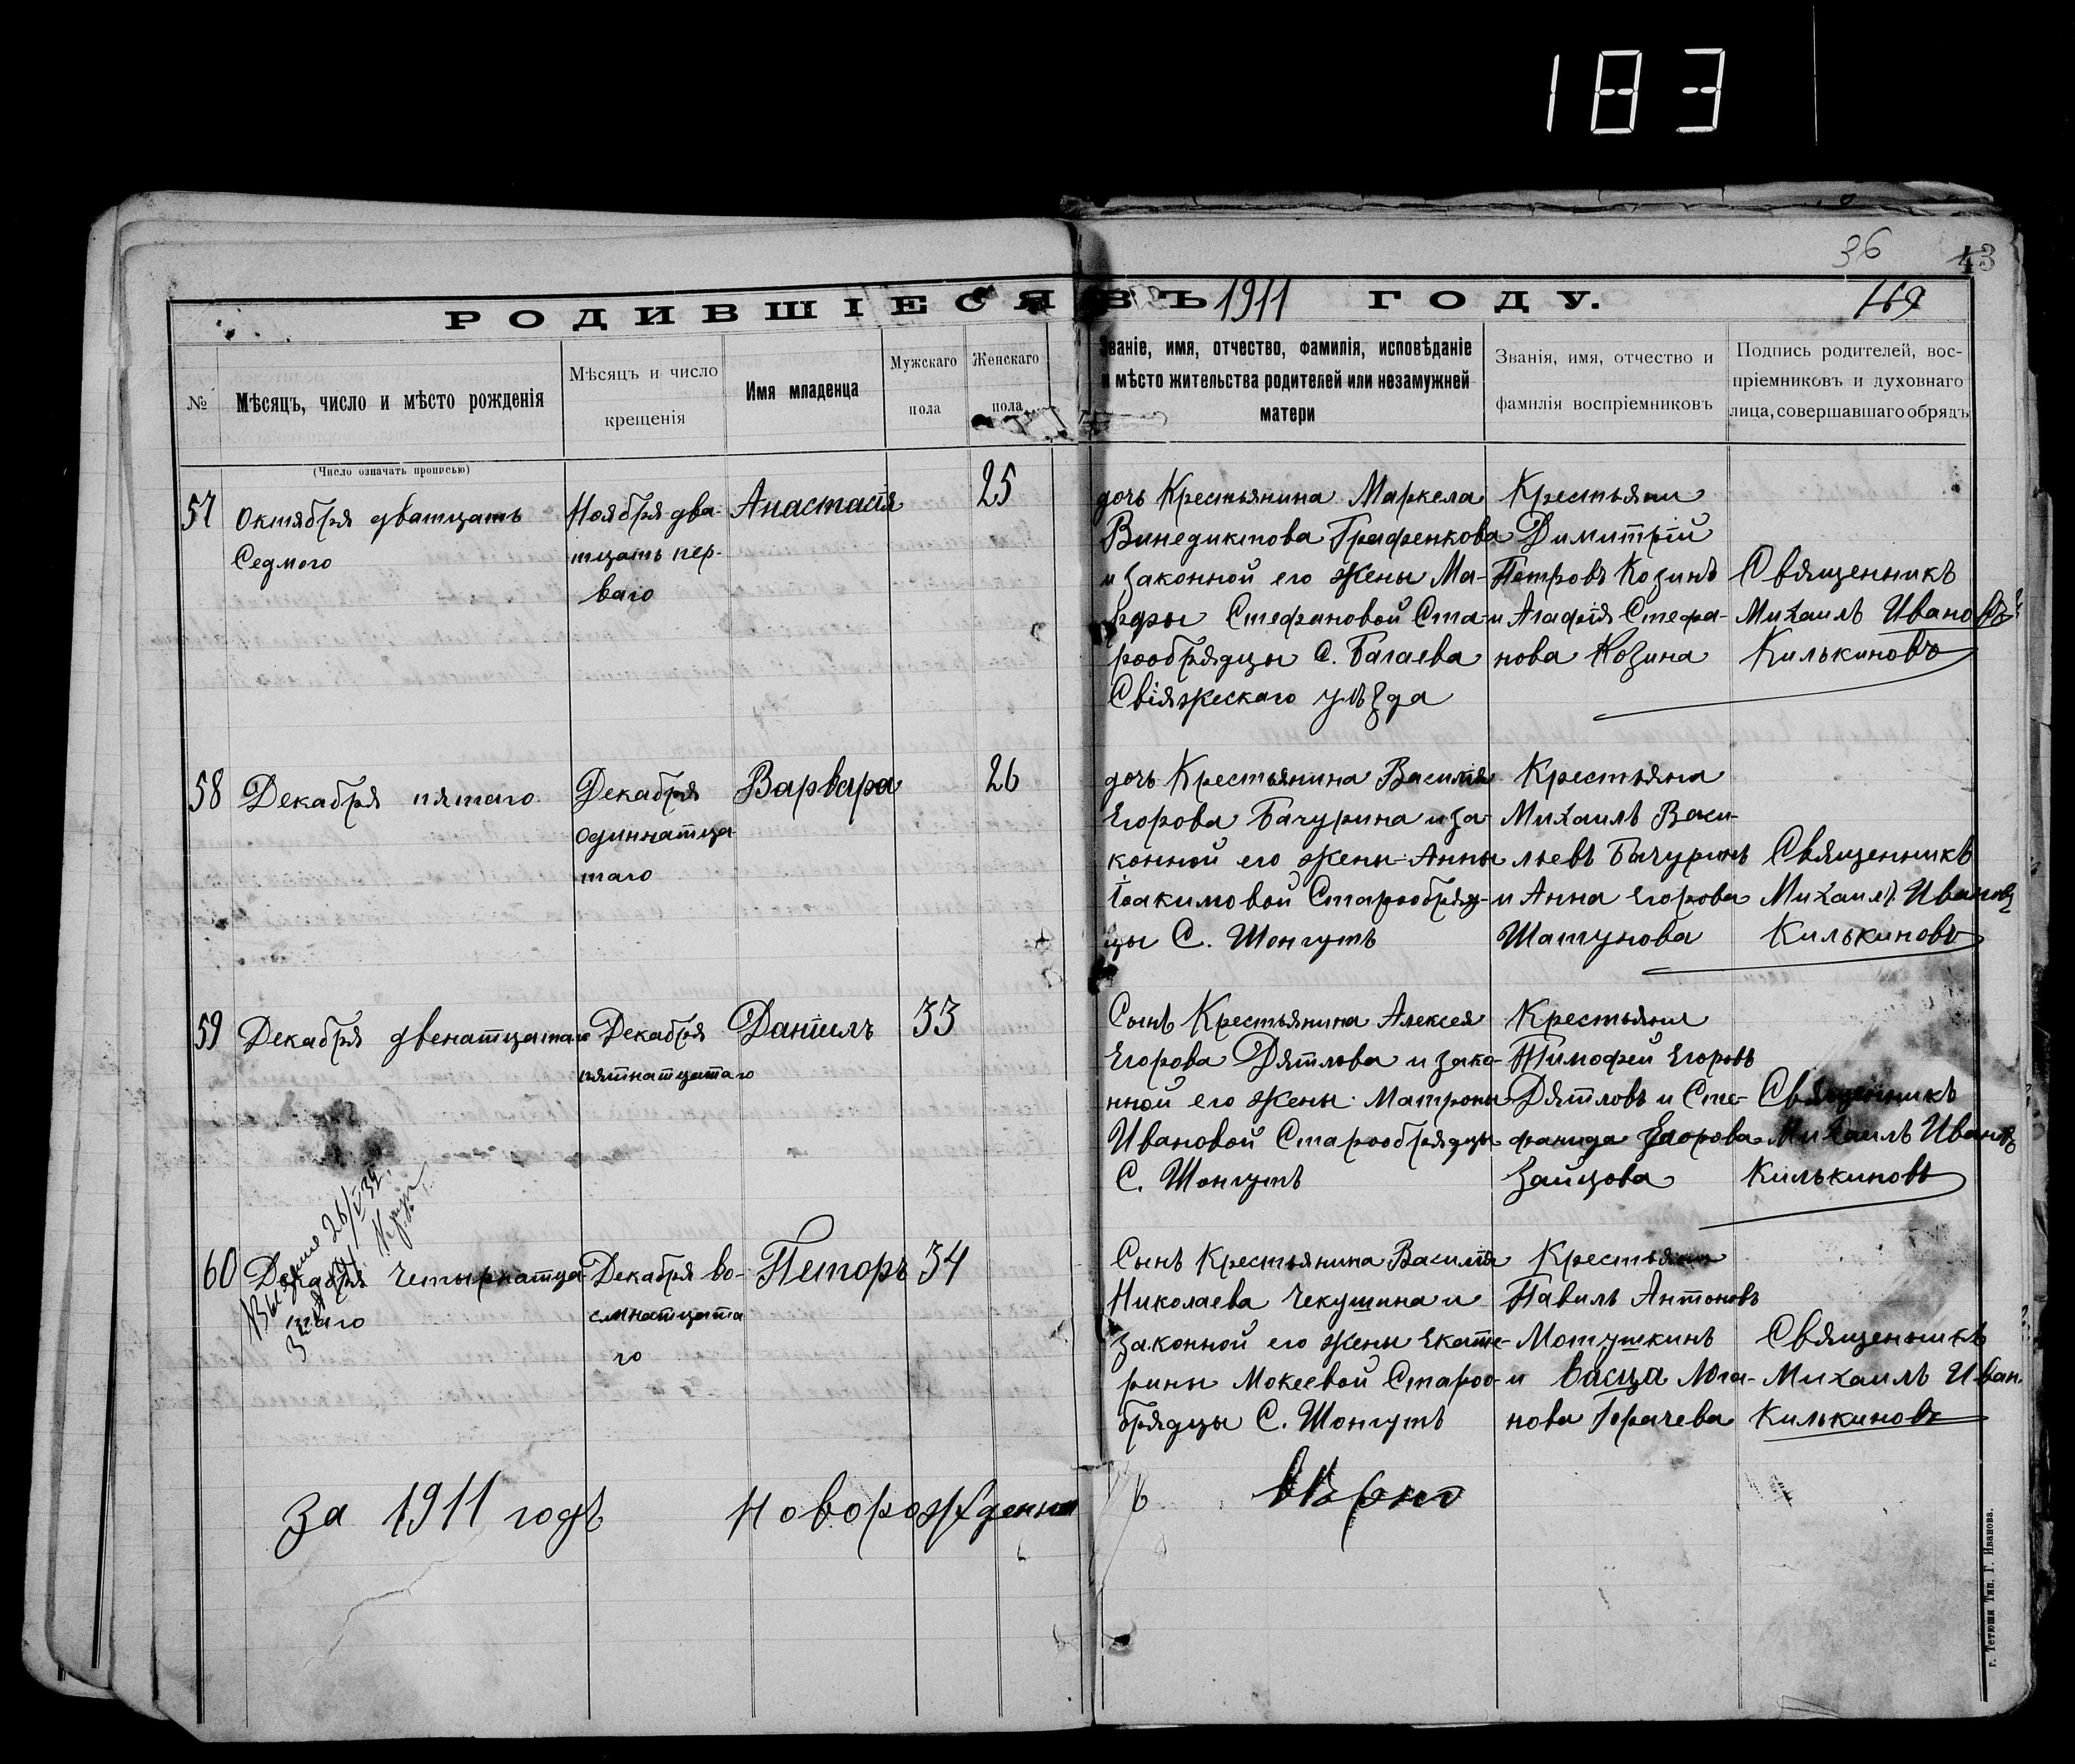 183
36
43
169
РОДИВШІЕСЯ ВЪ 1911 ГОДУ.
№
Мѣсяцъ, число и мѣсто рожденія
Мѣсяцъ и число
крещенія
Имя младенца
Мужскаго
пола
Женскаго
пола
Званіе, имя, отчество, фамилія, исповѣданіе
и мѣсто жительства родителей или незамужней
матери
Званія, имя, отчество и
фамилія воспріемниковъ
Подпись родителей, вос-
пріемниковъ и духовнаго
лица, совершавшаго обрядъ
(Число означать прописью)
57
Октября дватцать
Седмого
Ноября два-
тцать пер-
ваго
Анастасія
25
дочь Крестьянина Маркела
Винедиктова Графенкова
и законной его жены Ма-
рфы Стефановой Ста-
рообрядцы С. Багаева
Свіяжескаго уѣзда
Крестьяни
Димитрій
Петровъ Козинъ
и Агафія Стефа-
нова Козина
Священникъ
Михаилъ Ивановъ
Килькиновъ
58
Декабря пятаго
Декабря
одиннатца-
таго
Варвара
26
дочь Крестьянина Василія
Егорова Бачурина и за-
конной его жены Анны
Іоакимовой Старообряд-
цы С. Шонгутъ
Крестьяна
Михаилъ Васи-
льевъ Бачуринъ
и Анна Егорова
Шатунова
Священникъ
Михаилъ Ивановъ
Килькиновъ
59
Декабря двенатцатаго
Декабря
пятнатцатаго
Даніилъ
33
Сынъ Крестьянина Алексея
Егорова Дятлова и зако-
нной его жены Матроны
Ивановой Старообрядцы
С. Шонгутъ
Крестьяни
Тимофей Егоровъ
Дятловъ и Сте-
фанида Егорова
Зайцова
Священникъ
Михаилъ Ивановъ
Килькиновъ
26/V 39
60
Декабря Четырнатца
таго
Декабря во-
смнатцата
го
Петоръ
34
Сынъ Крестьянина Василія
Николаева Чекушина и
законной его жены Екате-
рины Мокеевой Староо-
брядцы С. Шонгутъ
Крестьяни
Павилъ Антоновъ
Мотушкинъ
нова
Священникъ
Михаилъ Иван.
Килькиновъ
за 1911 годъ
Новорожденна
Вѣрно
г. Тетюши Тип. Г. Иванова.